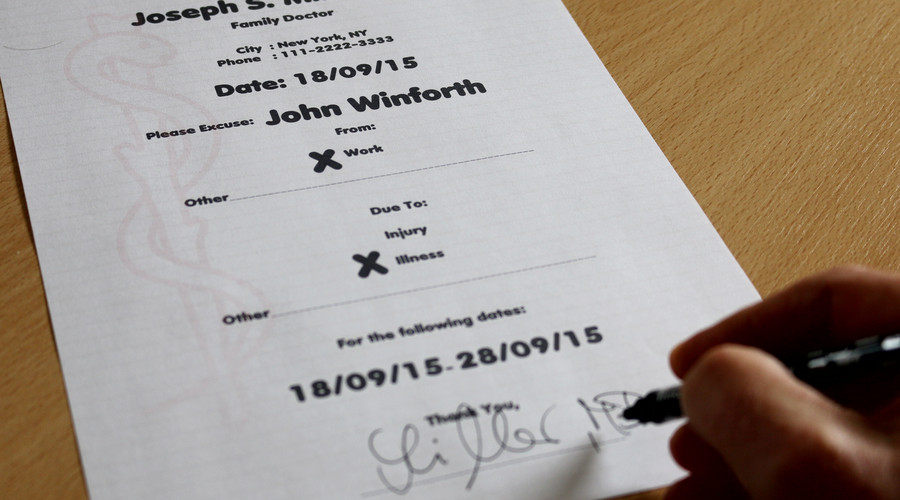 Joseph S.
Family Doctor
City : New York, NY
Phone : 111-2222-3333
Date: 18/09/15
Please Excuse: John Winforth
From:
Work
Other
Due To:
Injury
Illness
Other
For the following dates:
18/09/15-28/09/15
Thank You,